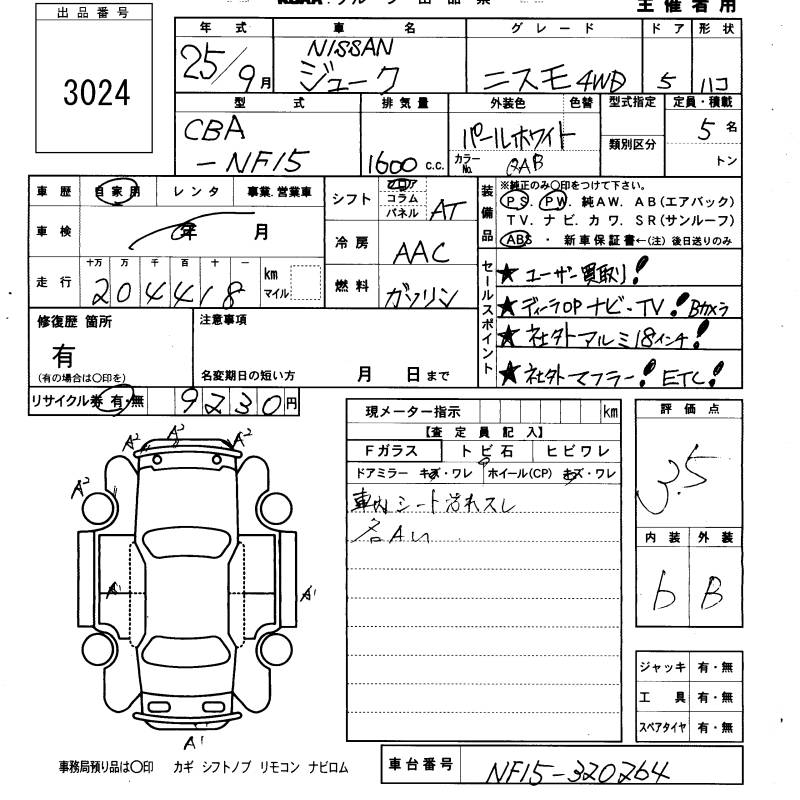 出品番号
3024
主催者用
年式 車名 グレード ドア 形状
25/9月 NISSAN ジューク ニスモ4WD 5 ハコ
型式 排気量 外装色 色替 型式指定 定員・積載
CBA -NF15 1600c.c. パールホワイト カラーNo. QAB 類別区分 5名 トン
車歴 自家用 レンタ 事業.営業車
車検 年 月
走行 十万 万 千 百 十 一 km マイル
204418
シフト フロア コラム パネル AT
冷房 AAC
燃料 ガソリン
装備品
※純正のみ○印をつけて下さい。
PS. PW. 純AW. AB(エアバック)
TV. ナビ. カワ. SR(サンルーフ)
ABS ・ 新車保証書←(注) 後日送りのみ
セールスポイント
★ユーザー買取り!
★ディーラOPナビ・TV!Bカメラ
★社外アルミ18インチ!
★社外マフラー!ETC!
修復歴 箇所
有
(有の場合は○印を)
注意事項
名変期日の短い方 月 日まで
リサイクル券 有・無 9230円
現メーター指示 km
【査定員記入】
Fガラス トビ石 ヒビワレ
ドアミラー キズ・ワレ ホイール(CP) キズ・ワレ
車内シート汚れスレ
各Aい
評価点
3.5
内装 外装
b B
A2 A2 A2
A2
A1 A1
A1
ジャッキ 有・無
工具 有・無
スペアタイヤ 有・無
事務局預り品は○印 カギ シフトノブ リモコン ナビロム
車台番号 NF15-320264